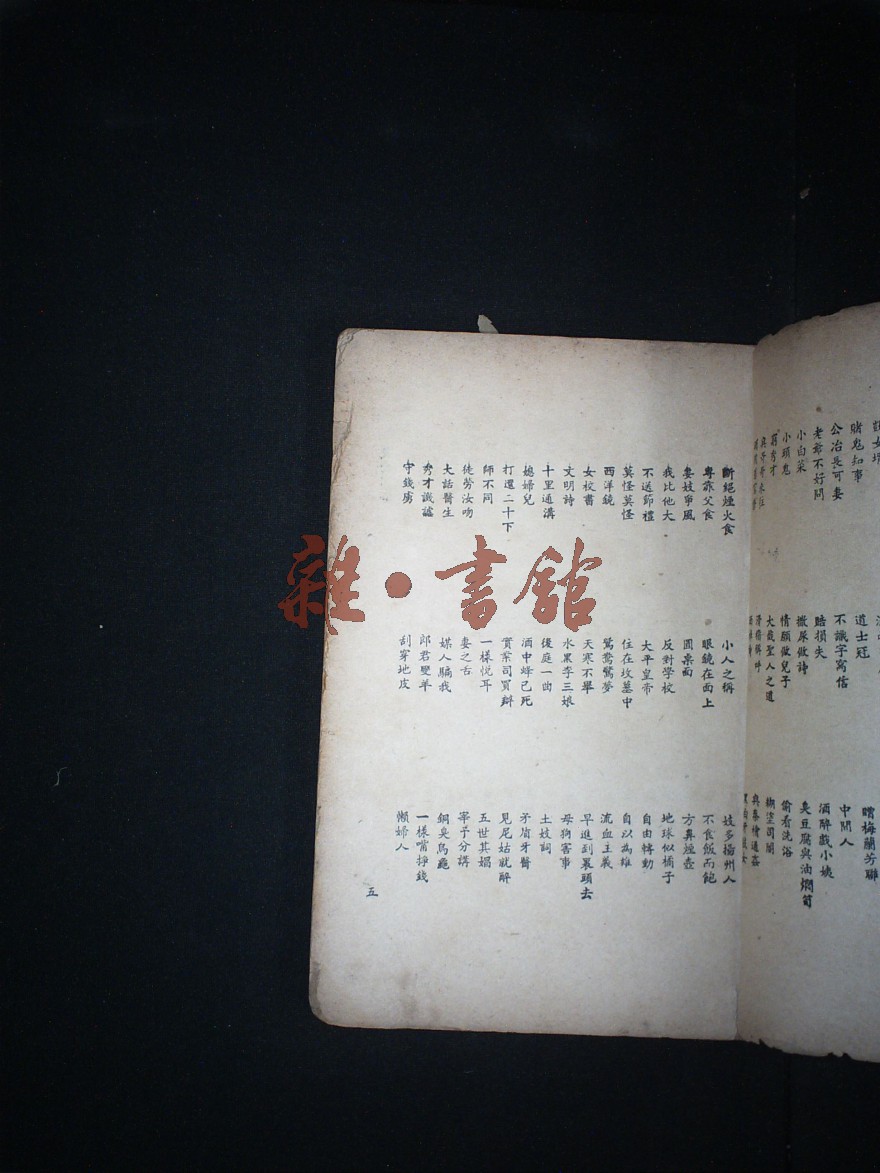 賭鬼知事
公冶長可妻
老爺不好問
小白菜
小頭鬼
窮秀才
道士冠
不識字寫信
賠損失
撒尿做詩
情願做兒子
大哉聖人之道
贈梅蘭芳聯
中間人
酒醉戲小姨
臭豆腐與油燜筍
偷看洗浴
與秦檜通姦
斷絕煙火食
專靠父食
妻妓爭風
我比他大
不送節禮
莫怪莫怪
西洋鏡
女校書
文明詩
十里通溝
媳婦兒
打還二十下
師不同
徒勞汝吻
大話醫生
秀才譏謔
守錢虜
小人之稱
眼鏡在面上
圓桌面
反對學校
大平皇帝
住在坟墓中
鴛鴦驚夢
天寒不舉
水果李三娘
後庭一曲
酒中蜂已死
實業司買辦
一樣悅耳
妻之舌
媒人騙我
郎君變羊
刮穿地皮
妓多揚州人
不食飯而飽
方鼻煙壺
地球似橘子
自由轉動
自以為雄
流血主義
早進到裏頭去
母狗害事
土妓詞
矛盾牙醫
見尼姑就醉
五世其娼
宰予分謗
銅臭烏龜
一樣嘴掙錢
懶婦人
五
雜·書館